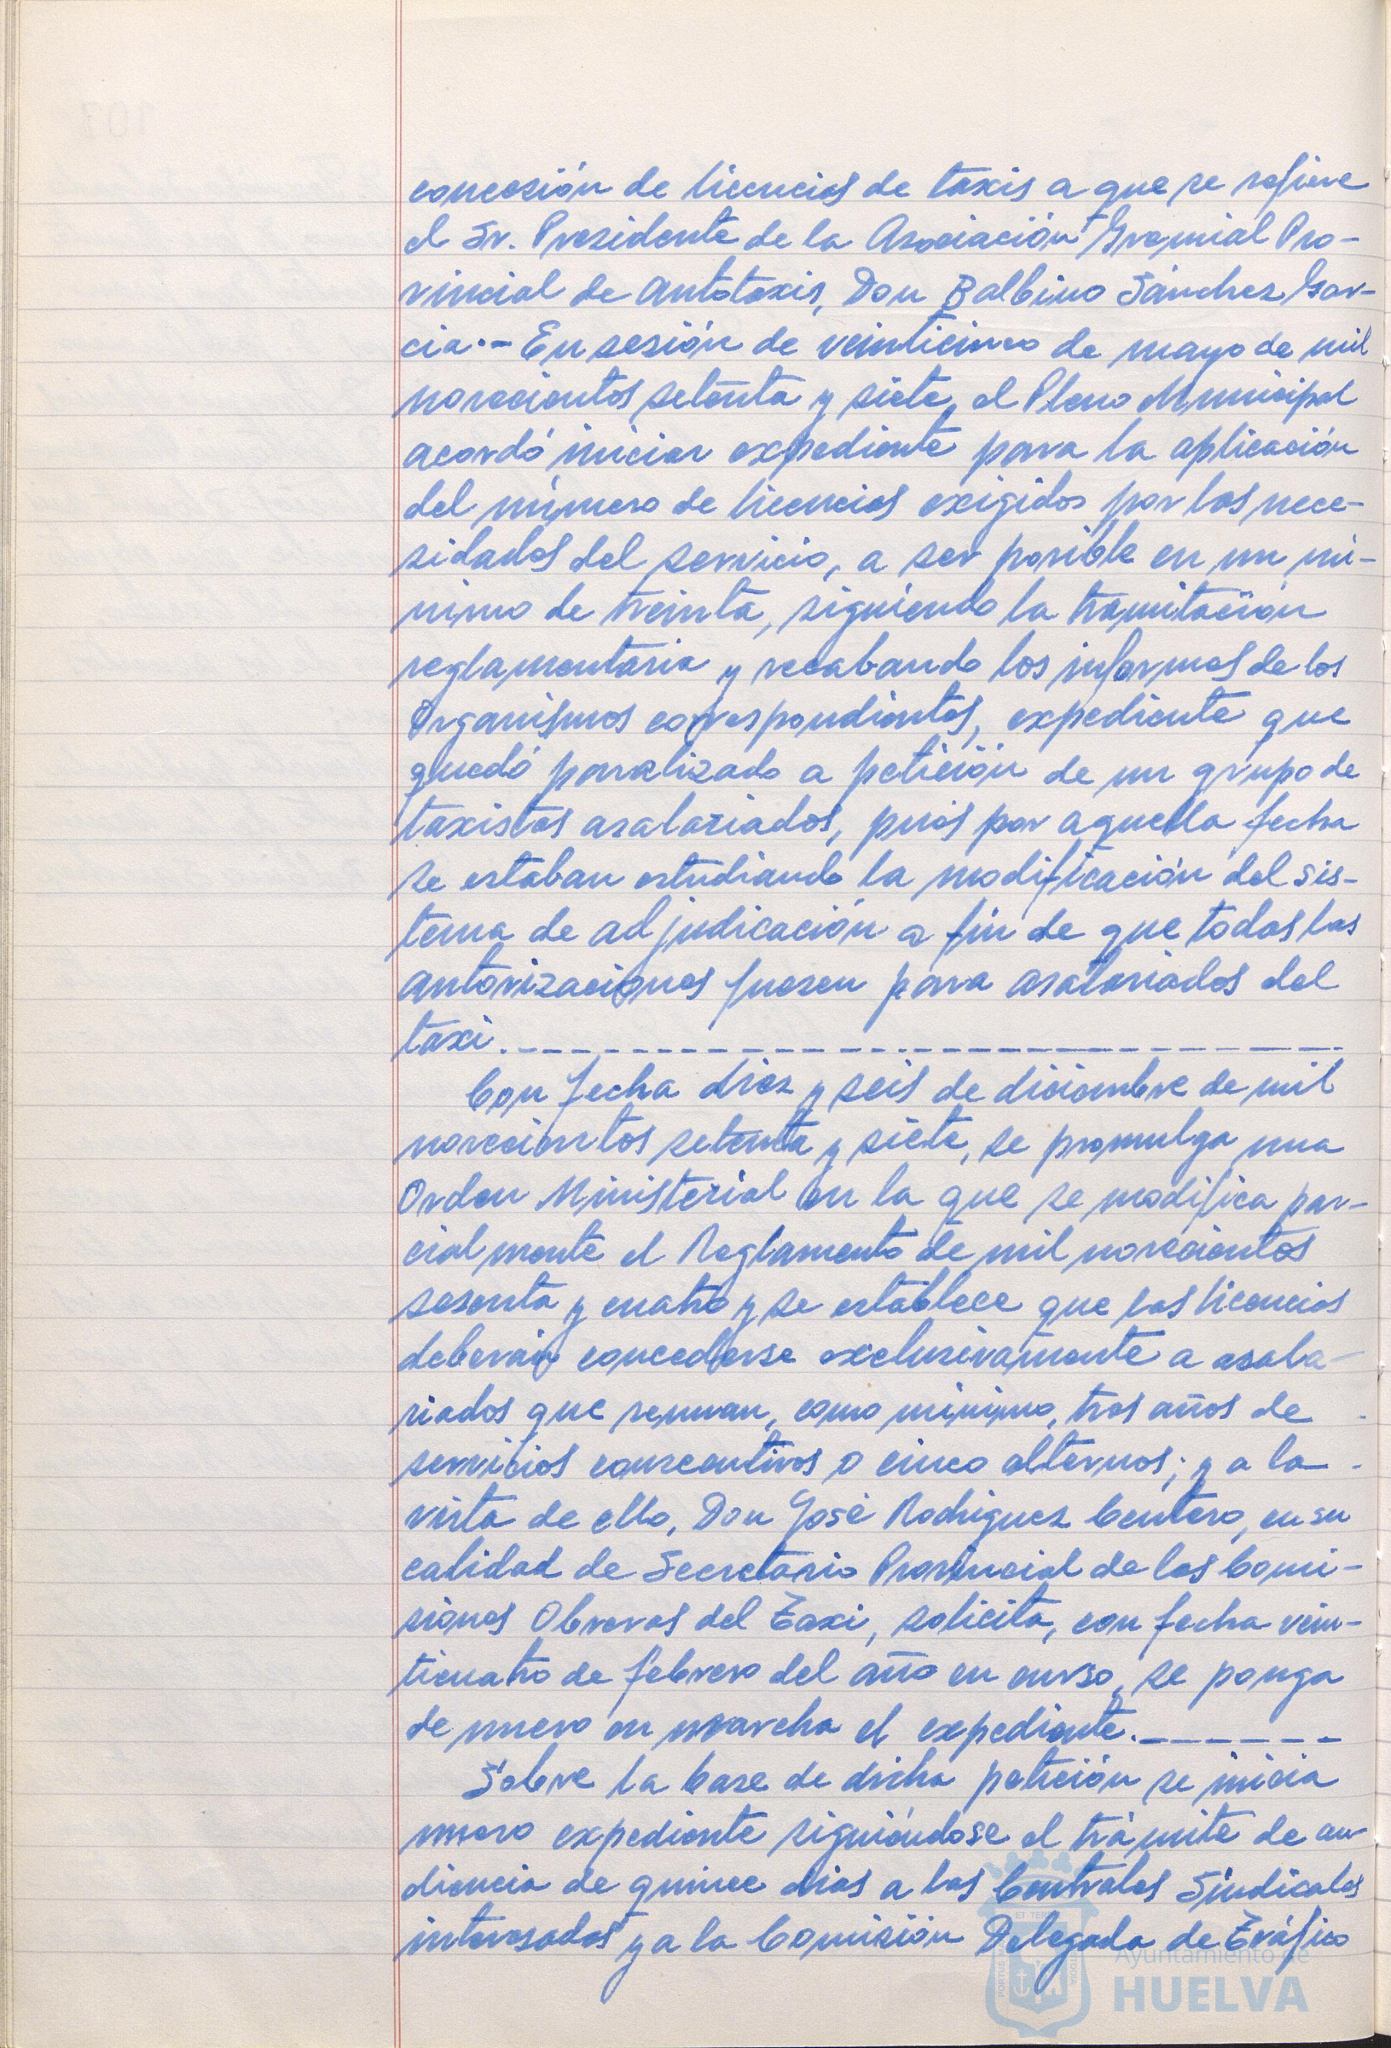 concesión de licencias de taxis a que se refiere
el Sr. Presidente de la Asociación Gremial Pro-
vincial de Autotaxis, Don Balbino Sánchez Gar-
cía.- En sesión de veinticinco de mayo de mil
novecientos setenta y siete, el Pleno Municipal
acordó iniciar expediente para la aplicación
del número de licencias exigidos por las nece-
sidades del servicio, a ser posible en un mí-
nimo de treinta, siguiendo la tramitación
reglamentaria y recabando los informes de los
Organismos correspondientes, expediente que
quedó paralizado a petición de un grupo de
taxistas asalariados, pués por aquella fecha
se estaban estudiando la modificación del sis-
tema de adjudicación a fin de que todas las
autorizaciones fuesen para asalariados del
taxi.
Con fecha diez y seis de diciembre de mil
novecientos setenta y siete, se promulga una
Orden Ministerial en la que se modifica par-
cialmente el Reglamento de mil novecientos
sesenta y cuatro y se establece que las licencias
deberán concederse exclusivamente a asala-
riados que reunan, como mínimo, tres años de
servicios consecutivos o cinco alternos; y a la
vista de ello, Don José Rodríguez Centeno, en su
calidad de Secretario Provincial de las Comi-
siones Obreras del Taxi, solicita, con fecha vein-
ticuatro de febrero del año en curso, se ponga
de nuevo en marcha el expediente.
Sobre la base de dicha petición se inicia
nuevo expediente siguiéndose el trámite de au-
diencia de quince días a las Centrales Sindicales
interesadas y a la Comisión Delegada de Tráfico
Ayuntamiento de
HUELVA